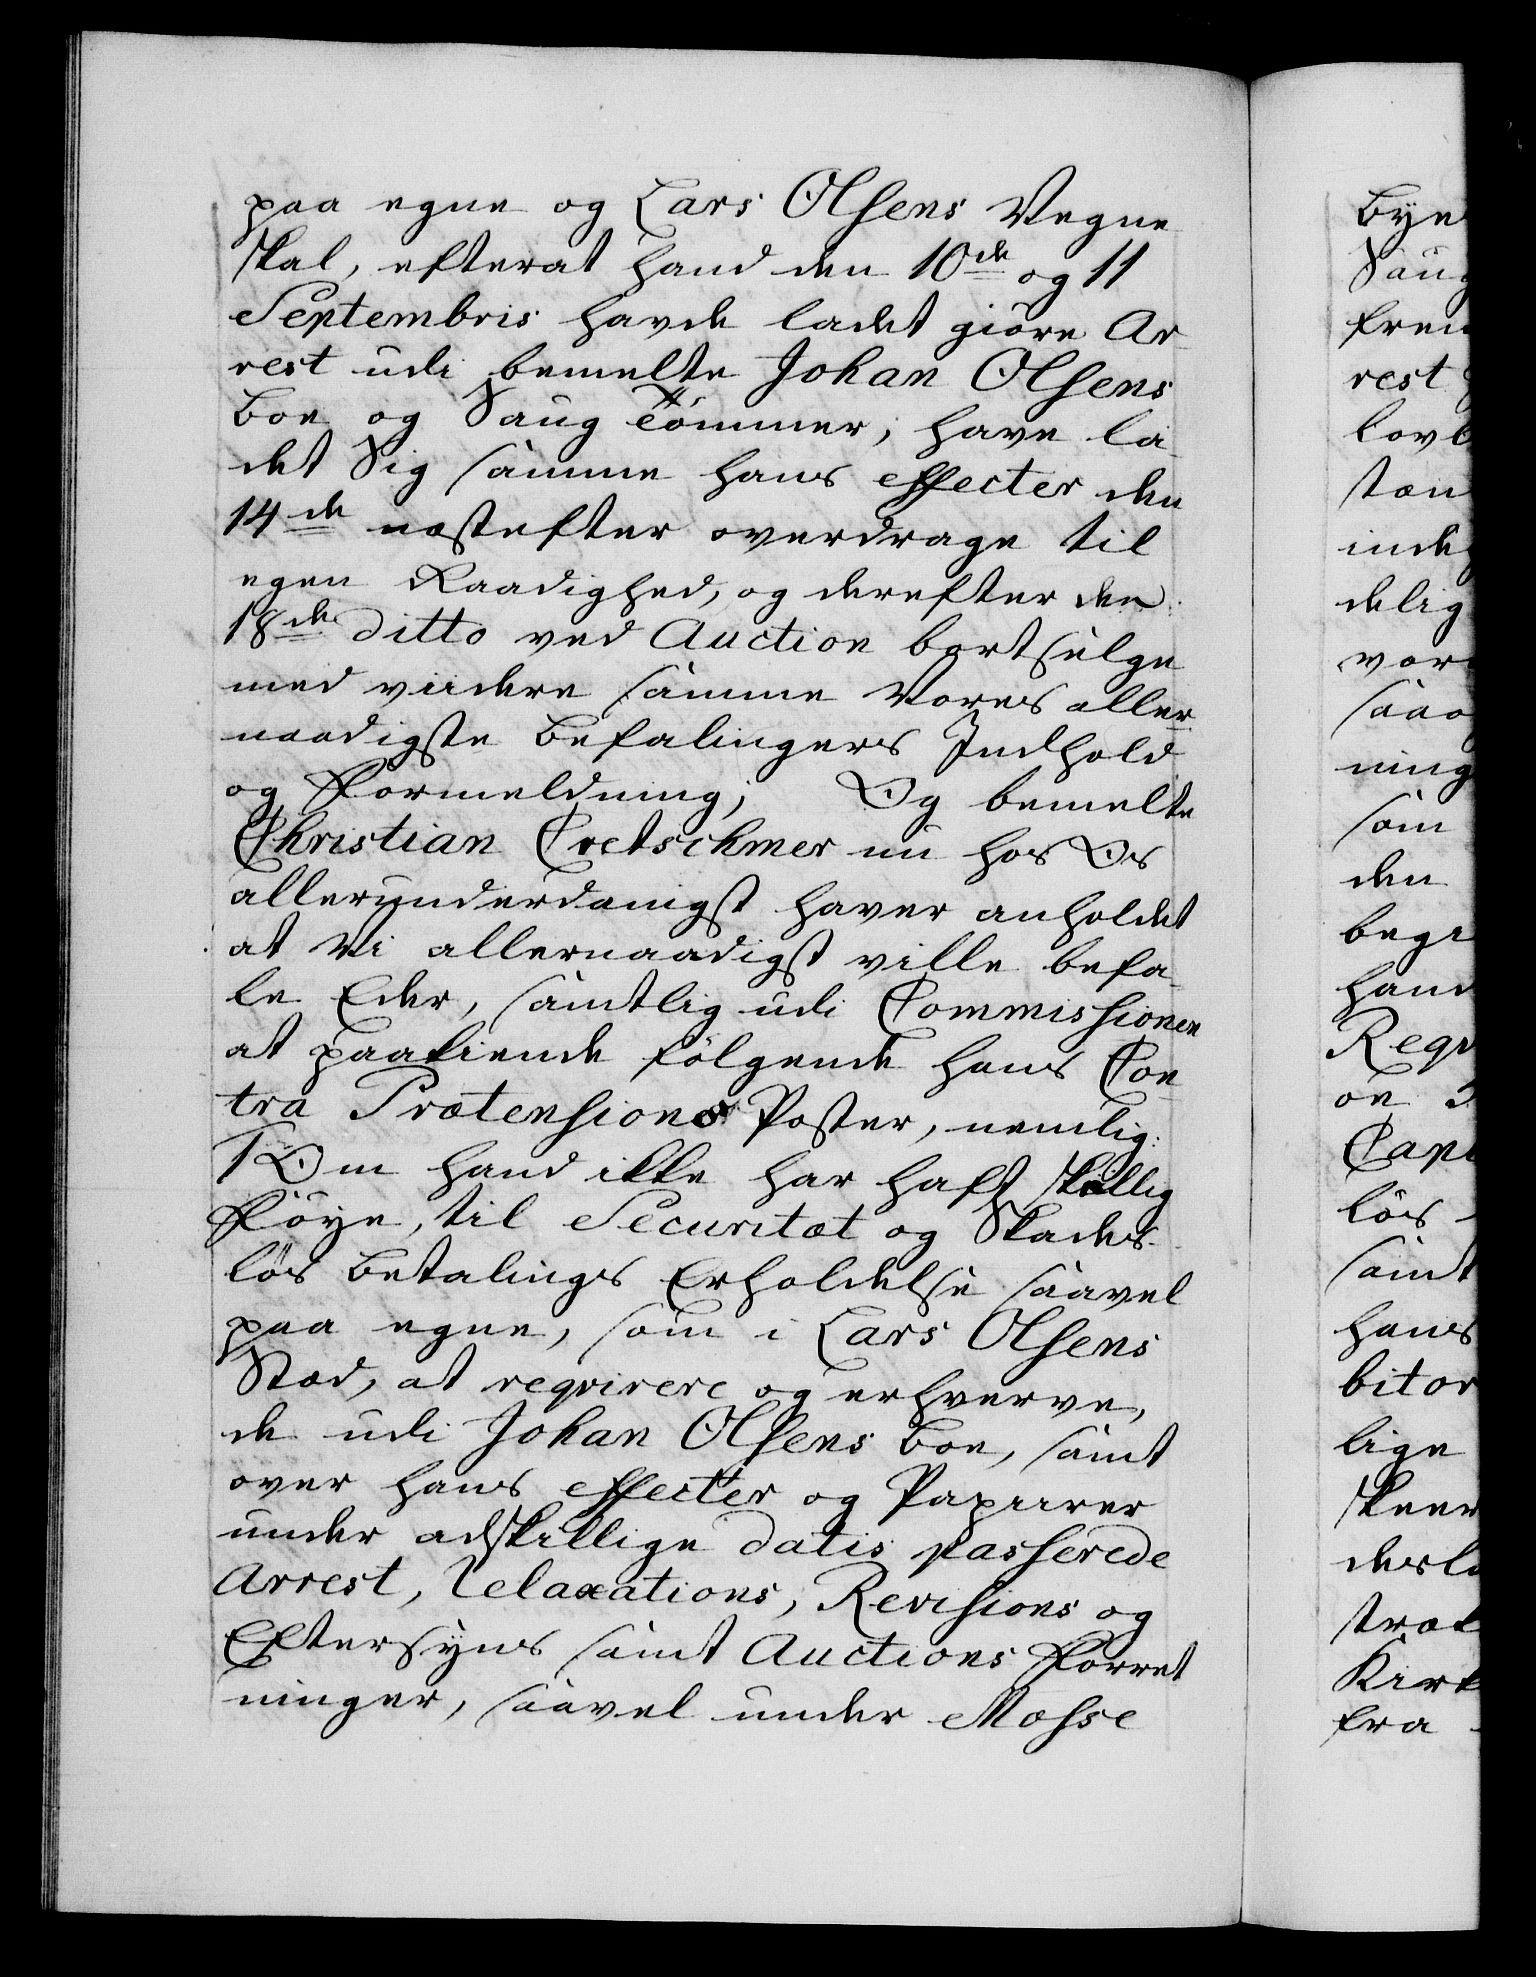 paa egne og Lars Olsens Vegne
skal, efterat hand den 10de og 11
Septembris havde ladet giöre Ar
rest udi bemelte Johan Olsens
Boe og Saug Tömmer, have la
det Sig samme hans effecter den
14de næstefter overdrage til
egen Raadighed, og derefter den
18de ditto ved Auction bortsælge
med videre samme Vores aller
naadigste Befalingers Indhold
og Formeldning; Og bemelte
Christian Cretschmer nu hos Os
allerunderdanigst haver anholdet
at Vi allernaadigst ville befa
le Eder, samtlig udi Commissionen
at paakiende fölgende hans Con
tra Prætensions Poster, nemlig:
1 Om hand ikke har haft skellig
Föye, til Securitæt og Skades
lös Betalings Erholdelse saavel
paa egne, som i Lars Olsens
Stæd, at reqvirere og erhverve,
de udi Johan Olsens Boe, samt
over hans effecter og Papiirer
under adskillige datis passerede
Arrest, Relaxations, Revisions og
Eftersyns samt Auctions Forret
ninger, saavel under Mosse
Bye
Saug
frem
rest
lovb
stæn
inde
delig
vor
saao
ning
som
den
begi
hand
Reqv
on
Capi
lös
samt
hans
bitor
lige
skeer
desl
træk
Kirk
fra